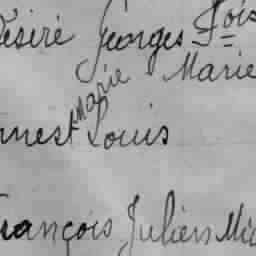 Désiré Georges Fois
Marie Marie
Ernest Marie Louis
François Julien Mic